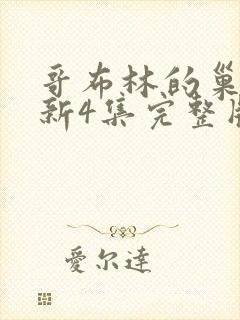 哥布林的巢
新4集完整
愛尔達